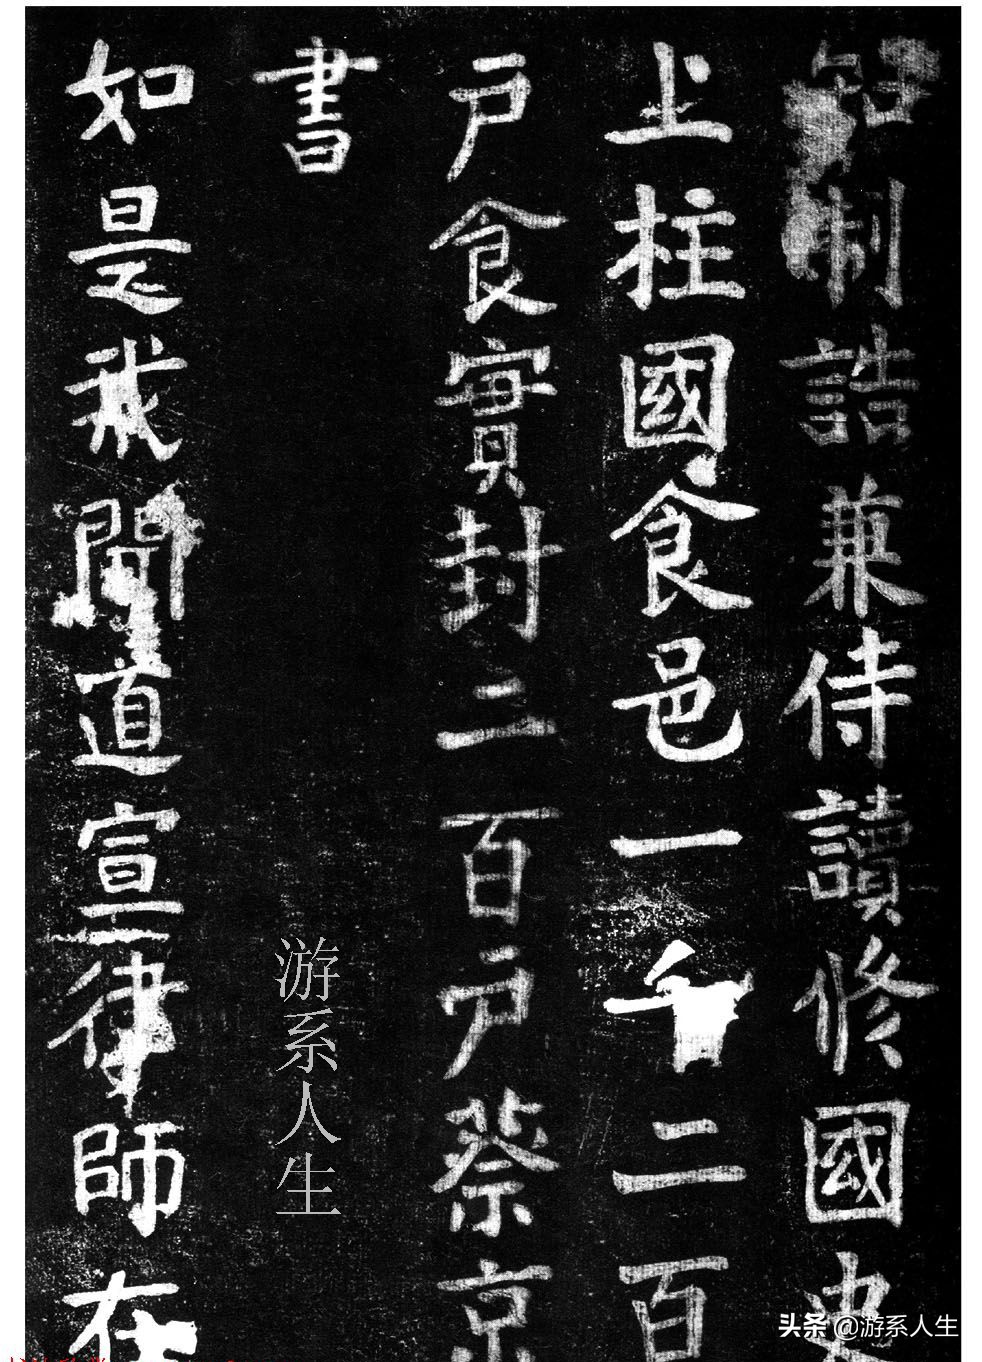 知制誥兼侍讀修國史
上柱國食邑一千二百
戶食實封二百戶蔡京
書
如是我聞道宣律師在
游系人生
头条 @游系人生